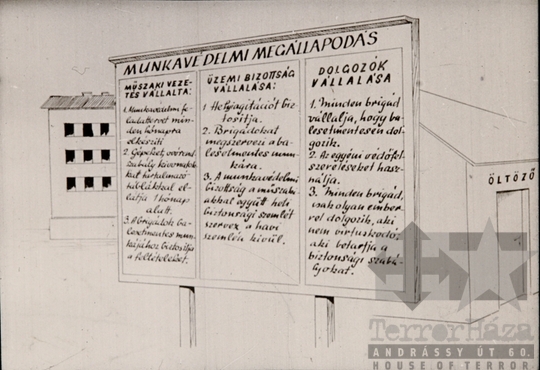 MUNKAVÉDELMI MEGÁLLAPODÁS
MŰSZAKI VEZE-
TÉS VÁLLALTA:
1. Munkavédelmi fe-
ladattervet min-
den hónapra
elkészíti
2. Gépeket, óvórend-
szabály kivonatok-
kat tartalmazó
táblákkal el-
látja 1 hónap
alatt.
3. A brigádok ba-
lesetmentes mun-
kájához biztosítja
a feltételeket.
ÜZEMI BIZOTTSÁG
VÁLLALÁSA:
1. Helyiagitációt biz-
tosítja.
2. Brigádokat
megszervezi a ba-
lesetmentes mun-
kára.
3. A munkavédelmi
bizottság a műszaki-
akkal együtt heti
biztonsági szemlét
szervez a havi
szemlén kívül.
DOLGOZÓK
VÁLLALÁSA
1. Minden brigád
vállalja, hogy ba-
lesetmentesen dol-
gozik.
2. Az egyéni védőfel-
szereléseket hasz-
nálja.
3. Minden brigád,
csak olyan ember-
rel dolgozik, aki
nem virtuskodó,
aki betartja a
biztonsági szabá-
lyokat.
ÖLTÖZŐ
TerrorHáza
ANDRÁSSY ÚT 60.
HOUSE OF TERROR